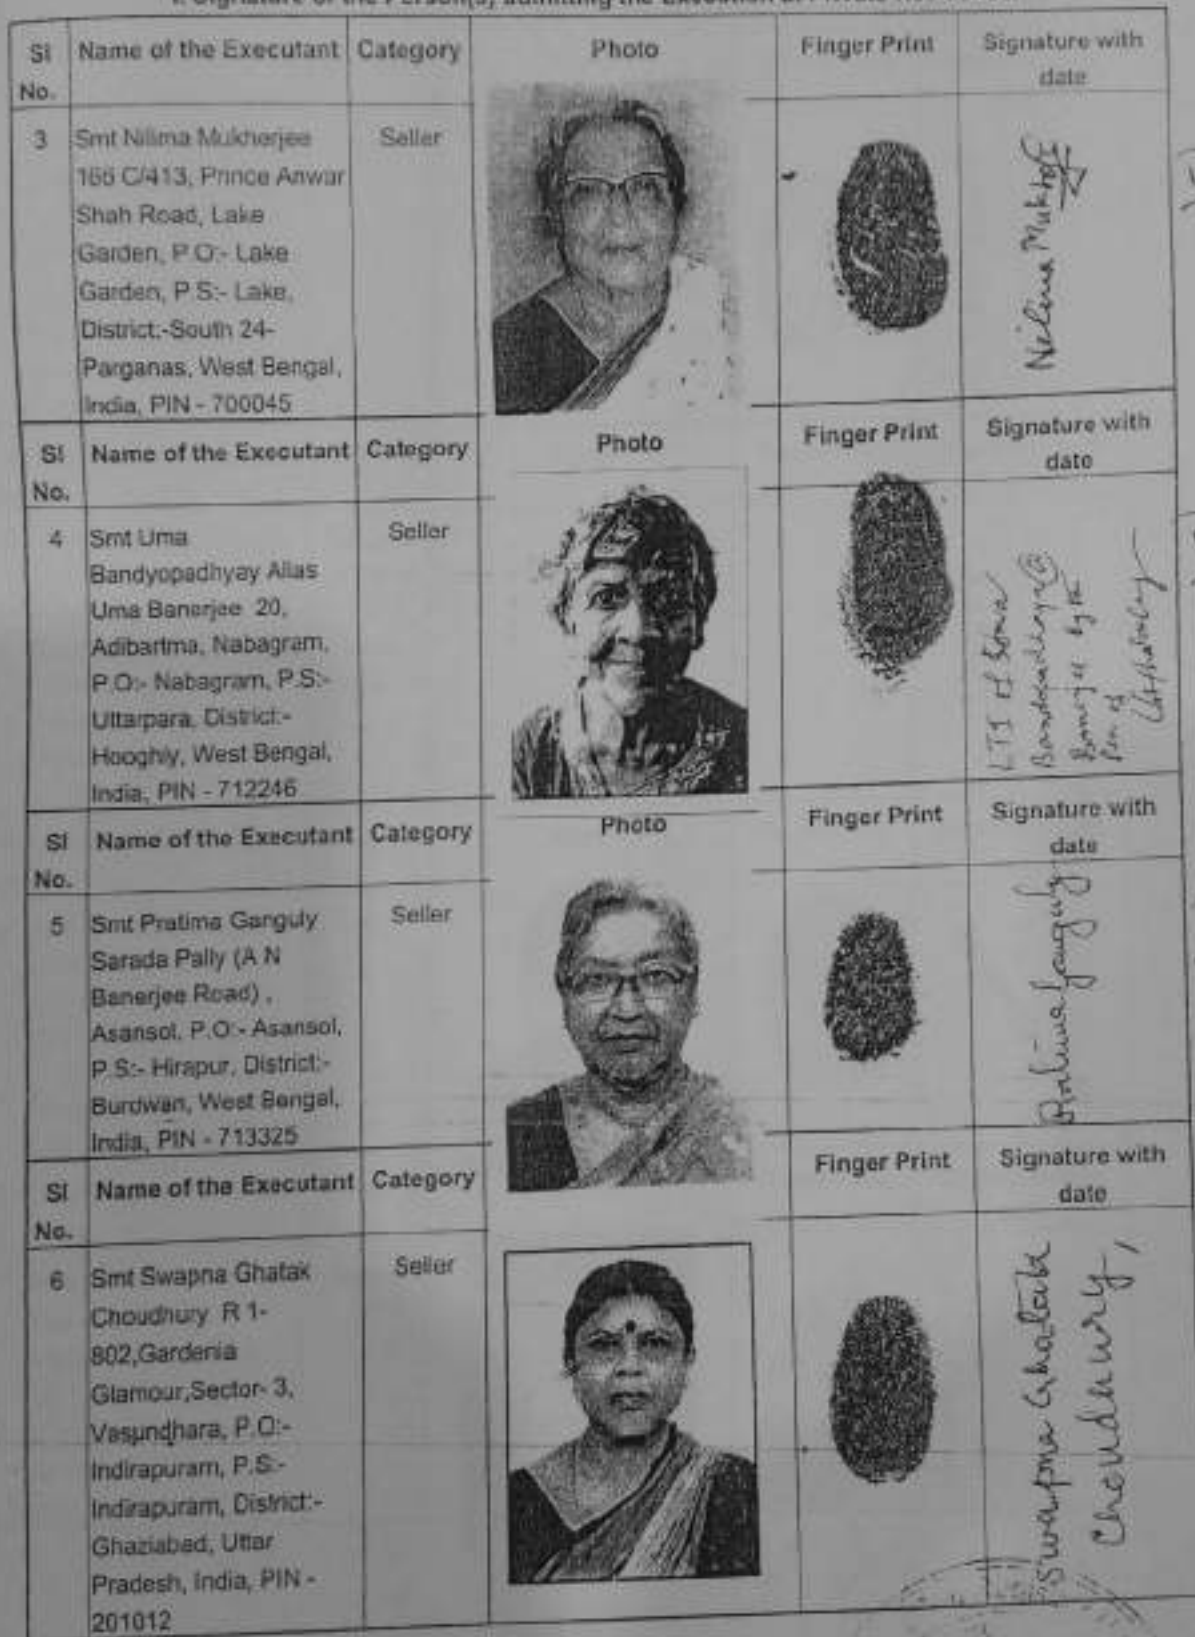 I. Signature of the Person(s) admitting the Execution at Private
Sl No. Name of the Executant Category Photo Finger Print Signature with date
3 Smt Nilima Mukherjee Seller
166 C/413, Prince Anwar
Shah Road, Lake
Garden, P.O:- Lake
Garden, P.S:- Lake,
District:-South 24-
Parganas, West Bengal,
India, PIN - 700045
Nilima Mukherjee
Sl No. Name of the Executant Category Photo Finger Print Signature with date
4 Smt Uma Seller
Bandyopadhyay Alias
Uma Banerjee 20,
Adibartma, Nabagram,
P.O:- Nabagram, P.S:-
Uttarpara, District:-
Hooghly, West Bengal,
India, PIN - 712246
LTI of Uma
Bandopadhyay @
Banerjee by the
Pen of
Sl No. Name of the Executant Category Photo Finger Print Signature with date
5 Smt Pratima Ganguly Seller
Sarada Pally (A N
Banerjee Road) ,
Asansol, P.O:- Asansol,
P.S:- Hirapur, District:-
Burdwan, West Bengal,
India, PIN - 713325
Pratima Ganguly
Sl No. Name of the Executant Category Finger Print Signature with date
6 Smt Swapna Ghatak Seller
Choudhury R 1-
802,Gardenia
Glamour,Sector- 3,
Vasundhara, P.O:-
Indirapuram, P.S:-
Indirapuram, District:-
Ghaziabad, Uttar
Pradesh, India, PIN -
201012
Swapna Ghatak
Choudhury,